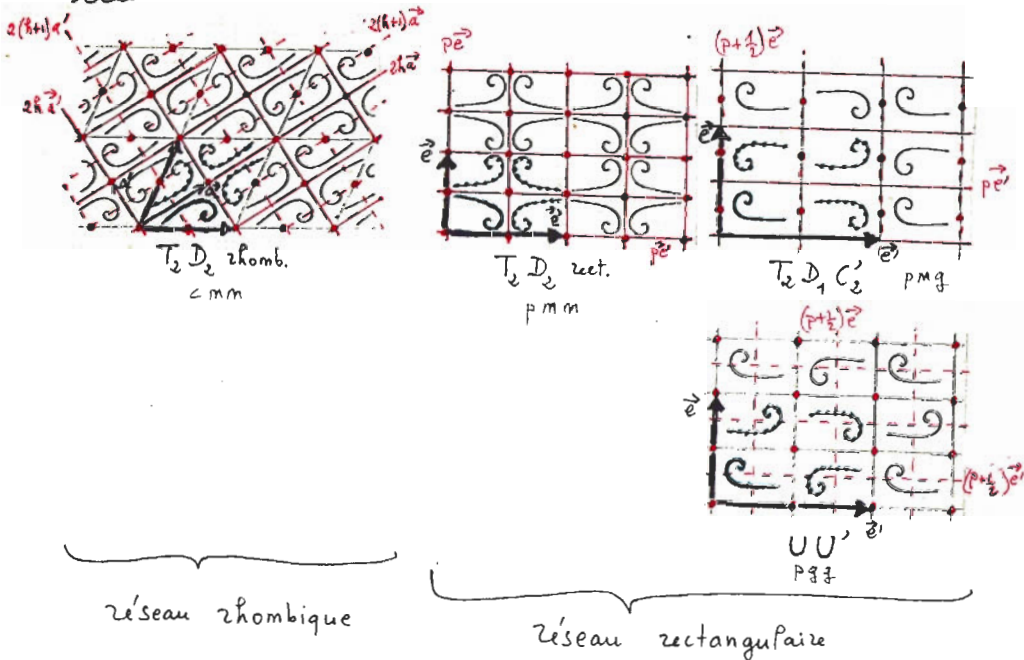 2(h+1)a
2(h+1)a⃗
2ha⃗
2ha⃗
T₂ D₂ rhomb.
c m m
pe⃗
e⃗
e⃗'
pe⃗'
T₂ D₂ rect.
p m m
(p+½)e⃗
e⃗
pe⃗'
e⃗'
T₂ D₁ C₂' p m g
(p+½)e⃗
e⃗
(p+½)e⃗'
e⃗'
U U'
p g g
réseau rhombique
réseau rectangulaire